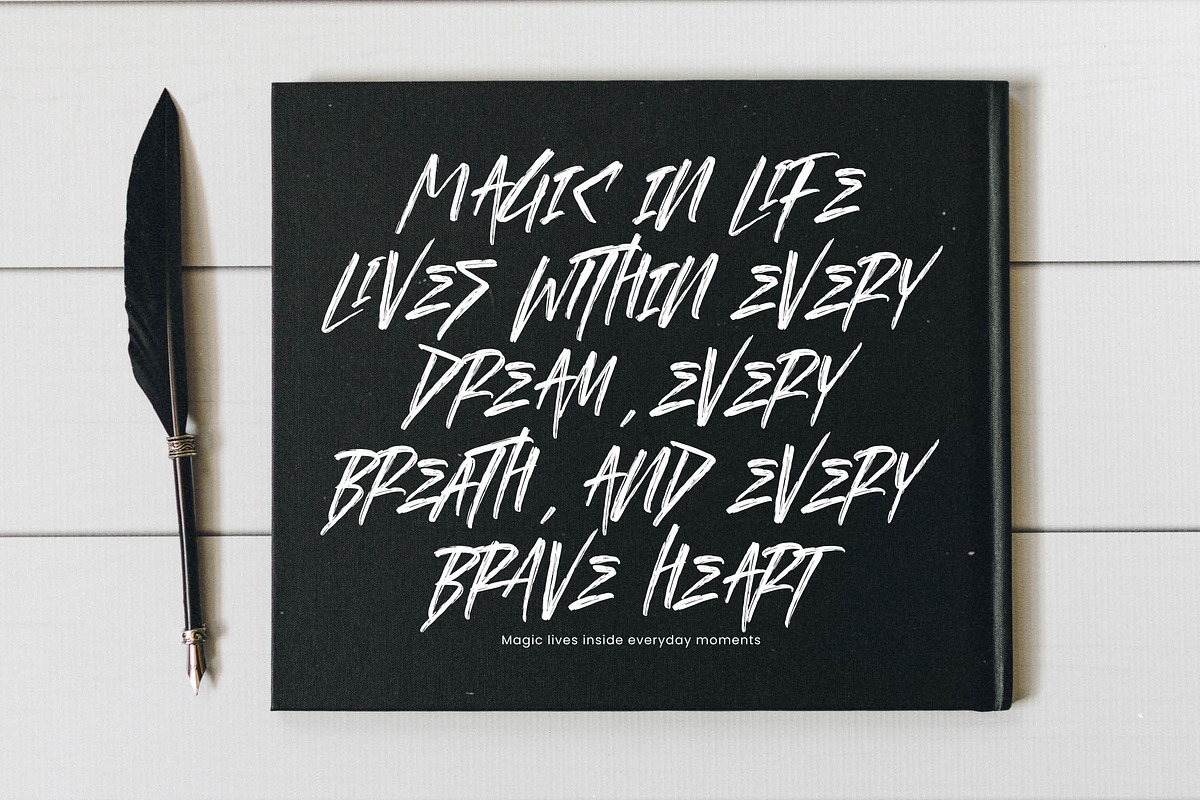 MAGIC IN LIFE
LIVES WITHIN EVERY
DREAM, EVERY
BREATH, AND EVERY
BRAVE HEART
Magic lives inside everyday moments